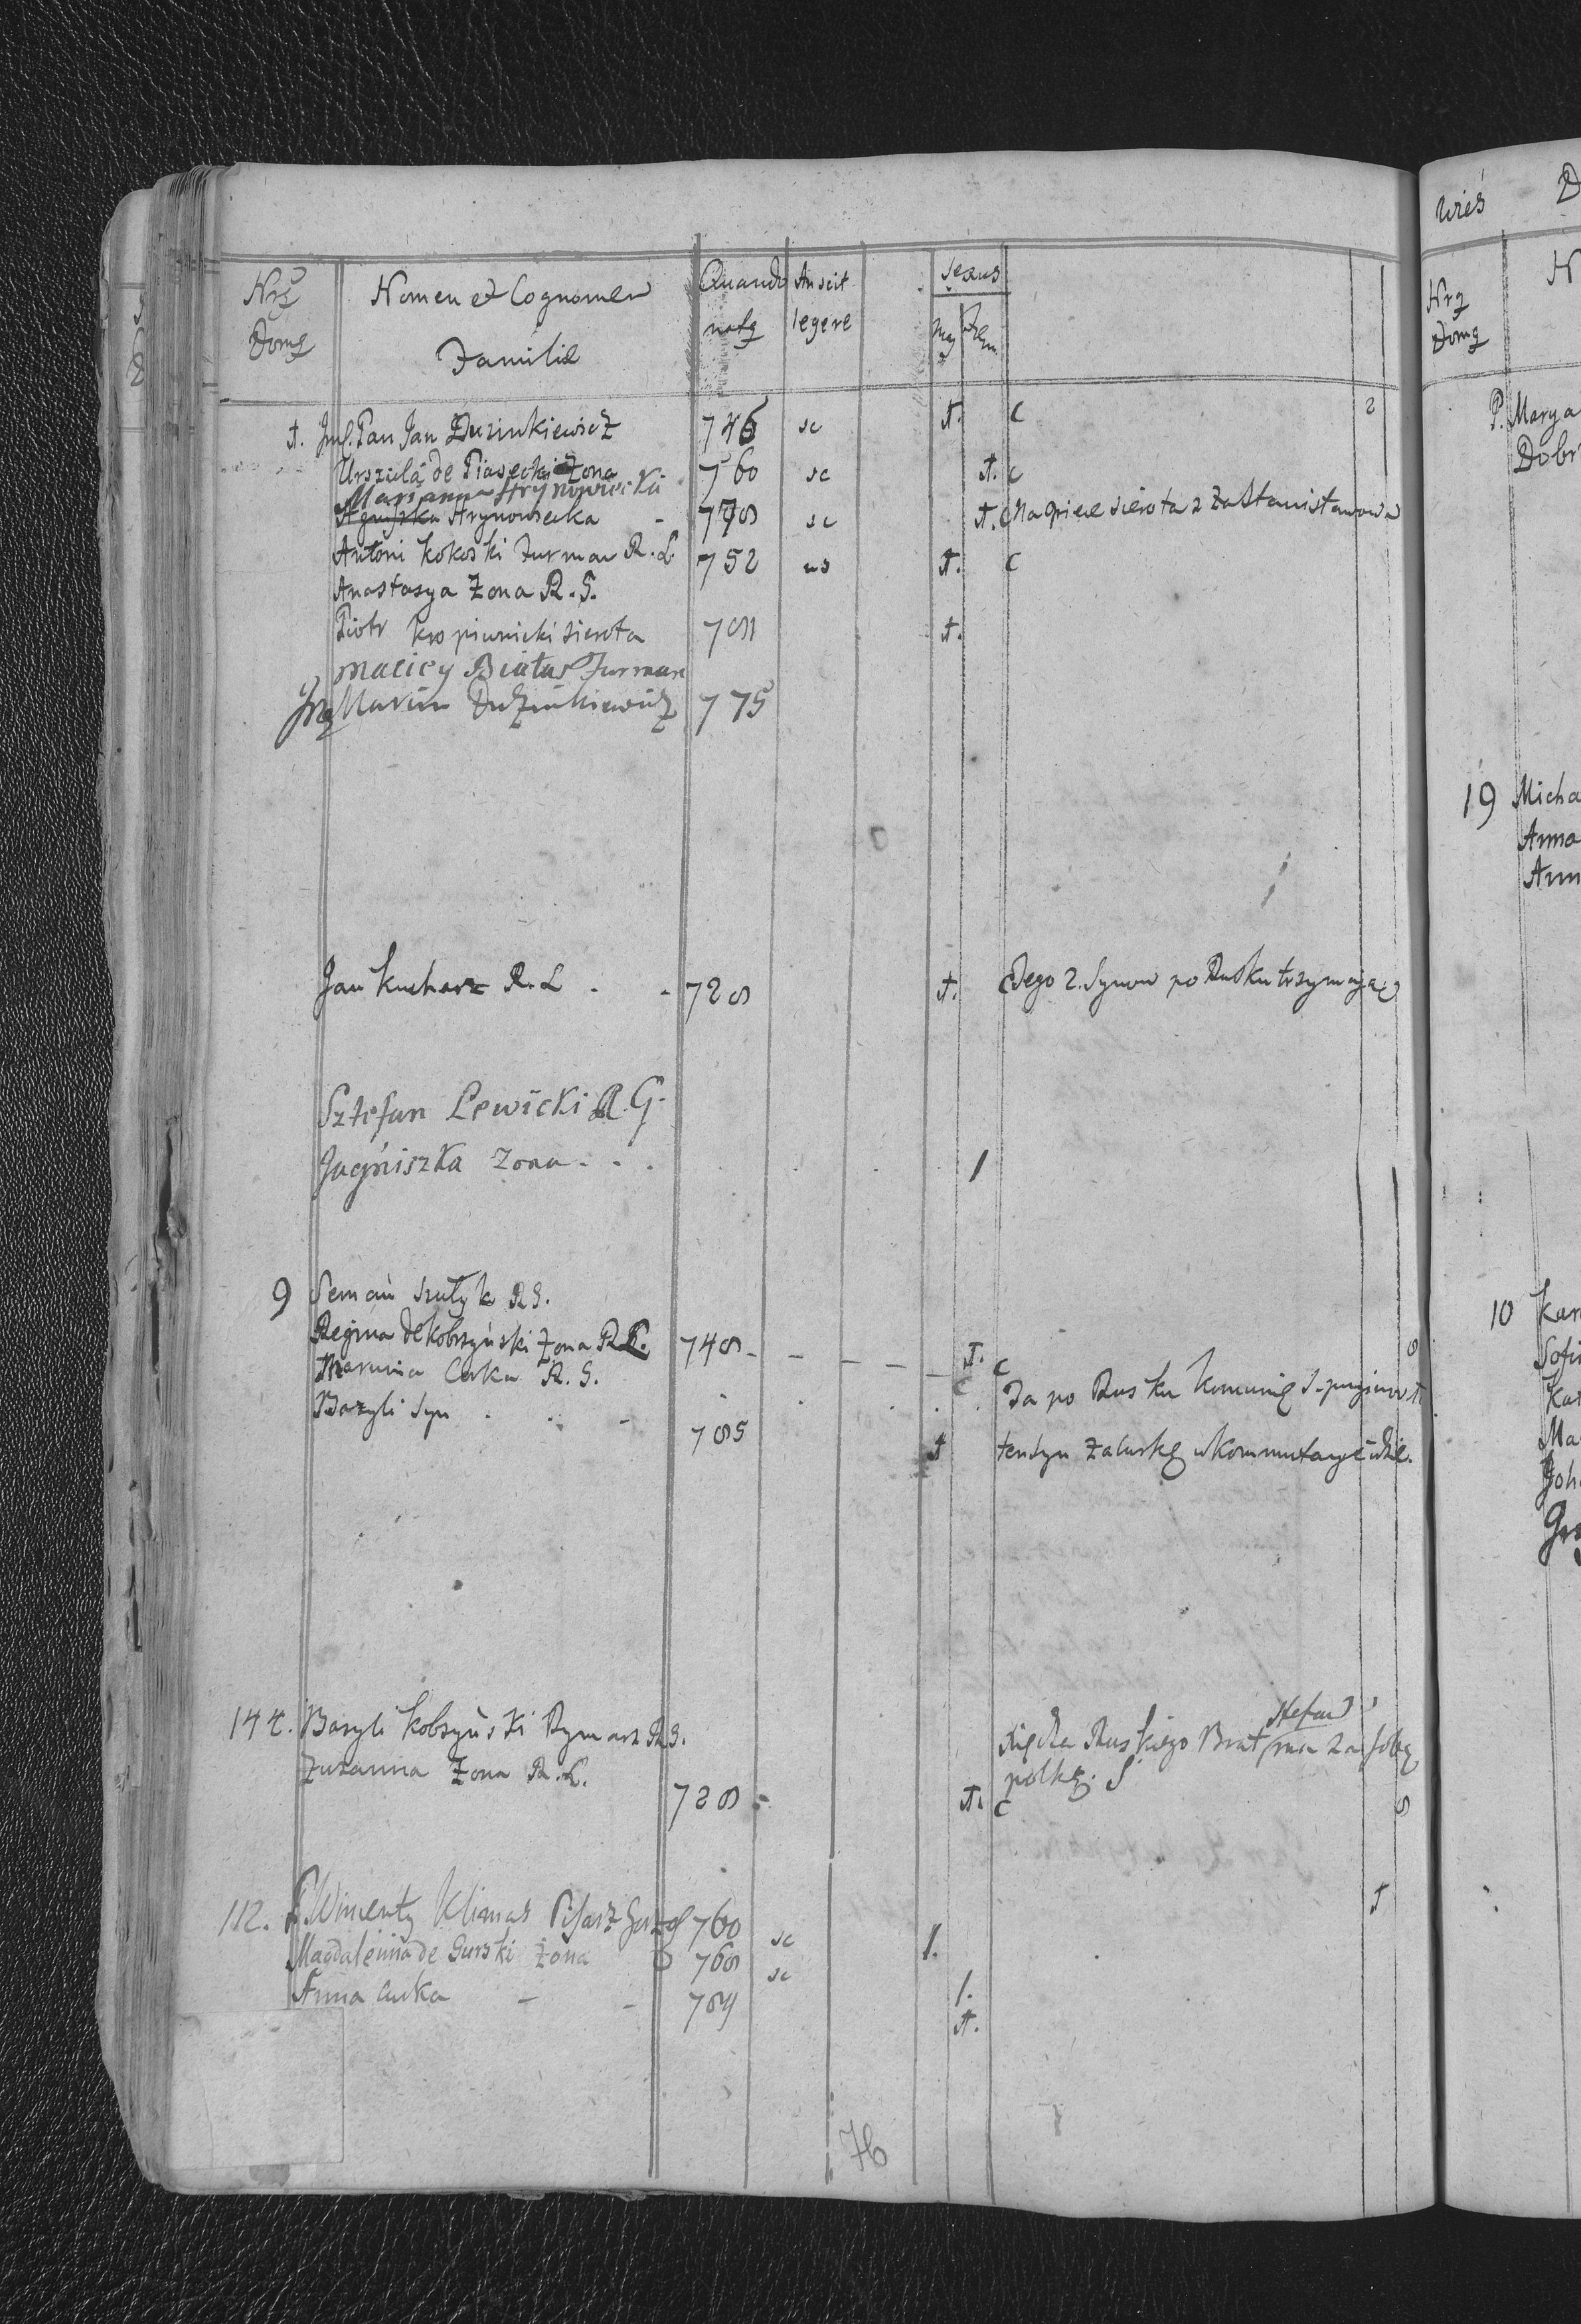 Nrꝫ Domꝫ Nomen et Cognomen Familie Quando natꝫ An scit legere Sexus Maꝫ Fem
1. Jmć. Pan Jan Duzinkiewicz 746 sc 1. c 2
Urszula de Piasecki Żona 760 sc 1. c
Marianna Hrynowiecka
Agniszka Hrynowiecka - 778 sc 1. c Na opiece sierota z za Stanisławowa
Antoni Kokoski Furman R.L. 752 ns 1. c
Anastasya Żona R.G.
Piotr Kropiwnicki sierota 1.
Maciey Białas Furman
Marcin Dudzinkiewicz 775
Jan Kucharz R.L. - 728 1. c Jego 2. Synow po Rusku trzymają
Sztefan Lewicki R.G.
Jagniszka Zona . . . 1
9 Seman R.G.
Regina de Kobrzyński Żona R.L. 748 - - - - 1. c 8
Marunia Curka R.G. c Ta po Rusku komunię
Bazyli Syn . . - 785 1 ten Syn
144. Bazyli Kobzyński Rymarz R.G. Xiędza Ruskiego Brat Stefan ma za sobą
Zuzanna Żona R.L. 728 - 1. c polkę. 8
112. P. Wincenty Klimas Pisarz 760 sc 1. 1
Magdalenna de Gurski Żona 768 sc 1.
Anna Curka - - 784 1.
76
wieś D
Nrꝫ Domꝫ N
P. Marya
Dobr
19 Micha
Anna
Ann
10 Kar
Sofi
Kat
Ma
Joh
Grz